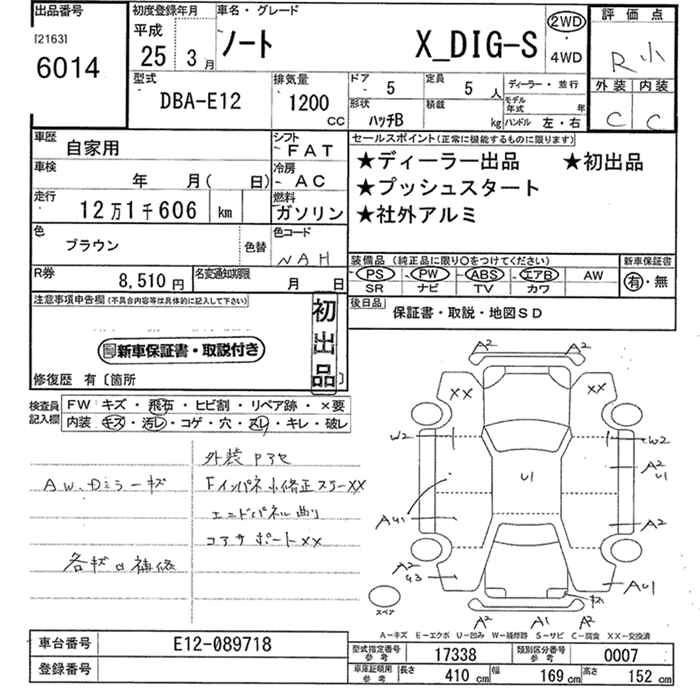 出品番号
[2163]
6014
初度登録年月
平成
25 3月
車名・グレード
ノート X_DIG-S
2WD
・
4WD
評価点
R 小
外装 内装
C C
型式
DBA-E12
排気量
1200
CC
ドア 5
形状 ハッチB
定員 5 人
積載 kg
ディーラー・並行
モデル年式 年
ハンドル 左・右
車歴 自家用
シフト FAT
車検 年 月( 日)
冷房 AC
走行 12万1千606 km
燃料 ガソリン
色 ブラウン
色替
色コード NAH
R券 8,510円
名変通知期限 月 日
セールスポイント(正常に機能するものに限ります)
★ディーラー出品 ★初出品
★プッシュスタート
★社外アルミ
装備品(純正品に限り○をつけてください)
PS PW ABS エアB AW
SR ナビ TV カワ
新車保証書
有・無
後日品 保証書・取説・地図SD
注意事項申告欄(不具合内容等は具体的に記入して下さい)
初出品
新車保証書・取説付き
修復歴 有〔箇所 〕
検査員記入欄
FW キズ・飛石・ヒビ割・リペア跡・×要
内装 キズ・汚レ・コゲ・穴・スレ・キレ・破レ
外装 P3セ
AW、Dミラーキズ
Fインパネ小修正スリーXX
エンドパネル曲り
コアサポートXX
各キズ凹補修
A2 A2
XX XX
W2 W2
A2
U1
U1
AU1 A2
A2
U3 AU1
キズ
A2 A1 A2
スペア
A-キズ E-エクボ U-凹み W-補修跡 S-サビ C-腐食 XX-交換済
車台番号 E12-089718
登録番号
型式指定番号 参考 17338
類別区分番号 参考 0007
車庫証明用 参考 長さ 410 cm 幅 169 cm 高さ 152 cm